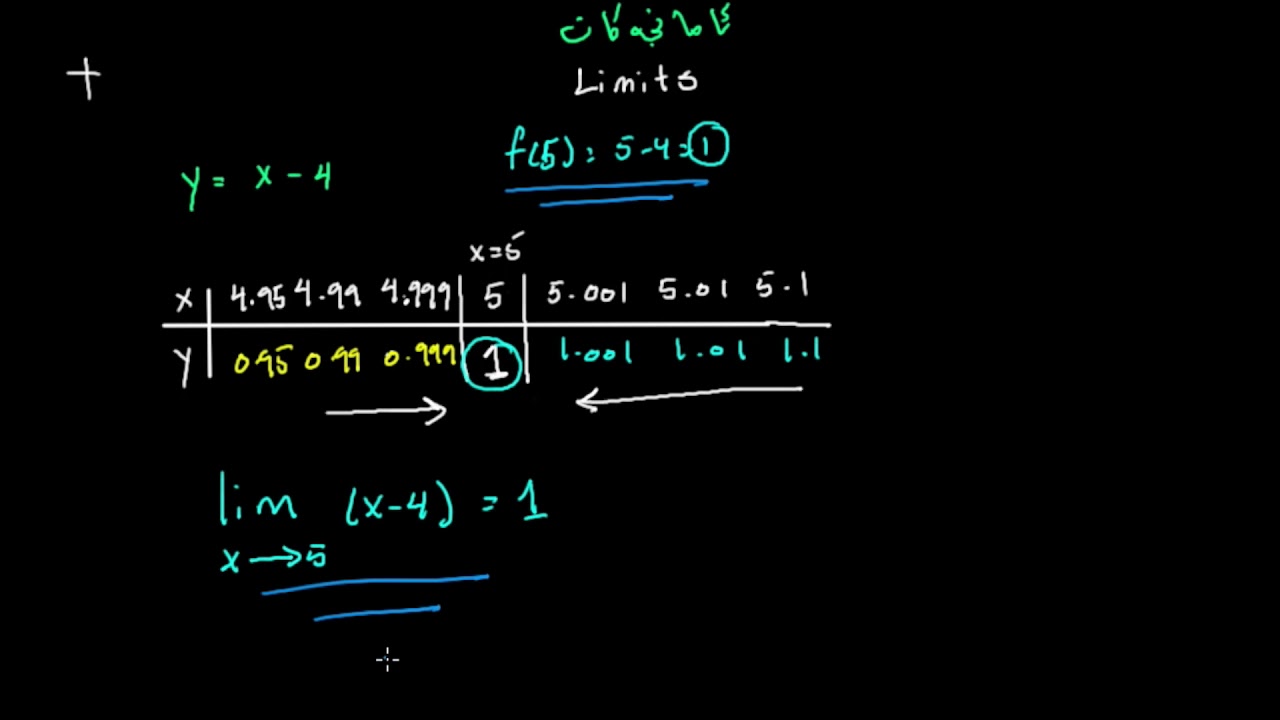 Limits
f(5) = 5-4=1
y = x - 4
x=5
x 4.95 4.99 4.999 5 5.001 5.01 5.1
y 0.95 0.99 0.999 1 1.001 1.01 1.1
lim (x-4) = 1
x→5